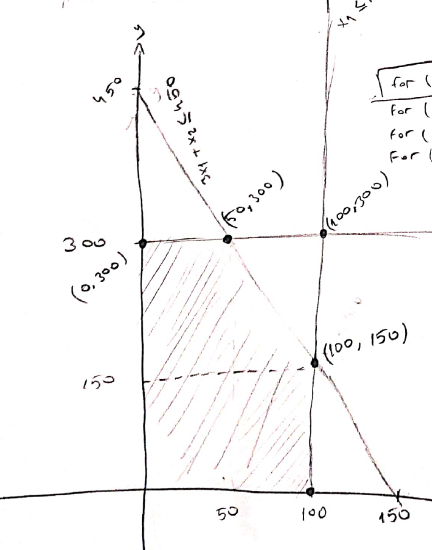 y
x1 ≤
450
3x1 + x2 ≤ 450
for (
for (
for (
for (
(50,300)
(100,300)
300
(0,300)
(100, 150)
150
50
100
150